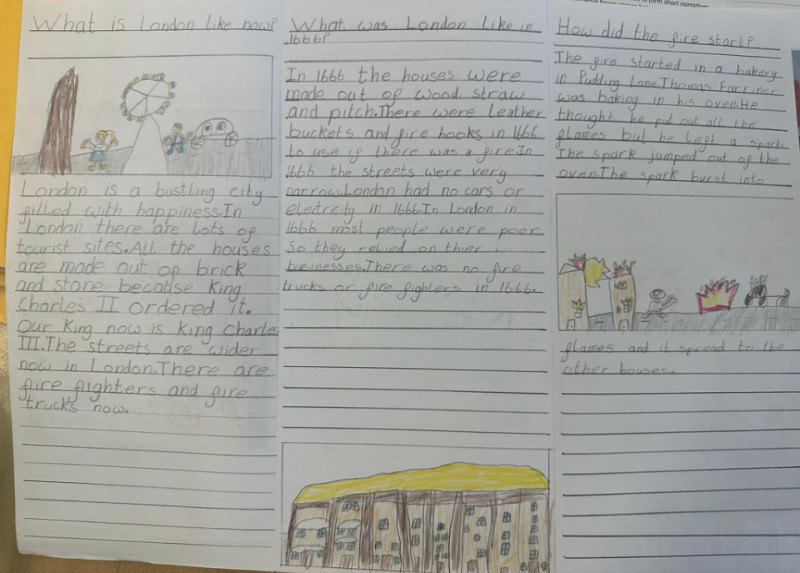 What is London like now?
London is a bustling city
filled with happiness.In
London there are lots of
tourist sites.All the houses
are made out of brick
and stone because King
Charles II ordered it.
Our King now is King charles
III.The streets are wider
now in London.There are
fire fighters and fire
trucks now.
What was London like in
1666?
In 1666 the houses were
made out of wood straw
and pitch.There were leather
buckets and fire hooks in 1666
to use if there was a fire.In
1666 the streets were very
narrow.London had no cars or
eledtricity in 1666.In London in
1666 most people were poor
So they relied on thier
businesses.There was no fire
trucks or fire fighters in 1666.
How did the fire start?
The fire started in a bakery
in Pudding Lane.Thomas Farriner
was baking in his oven.He
thought he put out all the
flames but he left a spark.
The spark jumped out of the
oven.The spark burst into
flames and it spread to the
other houses.